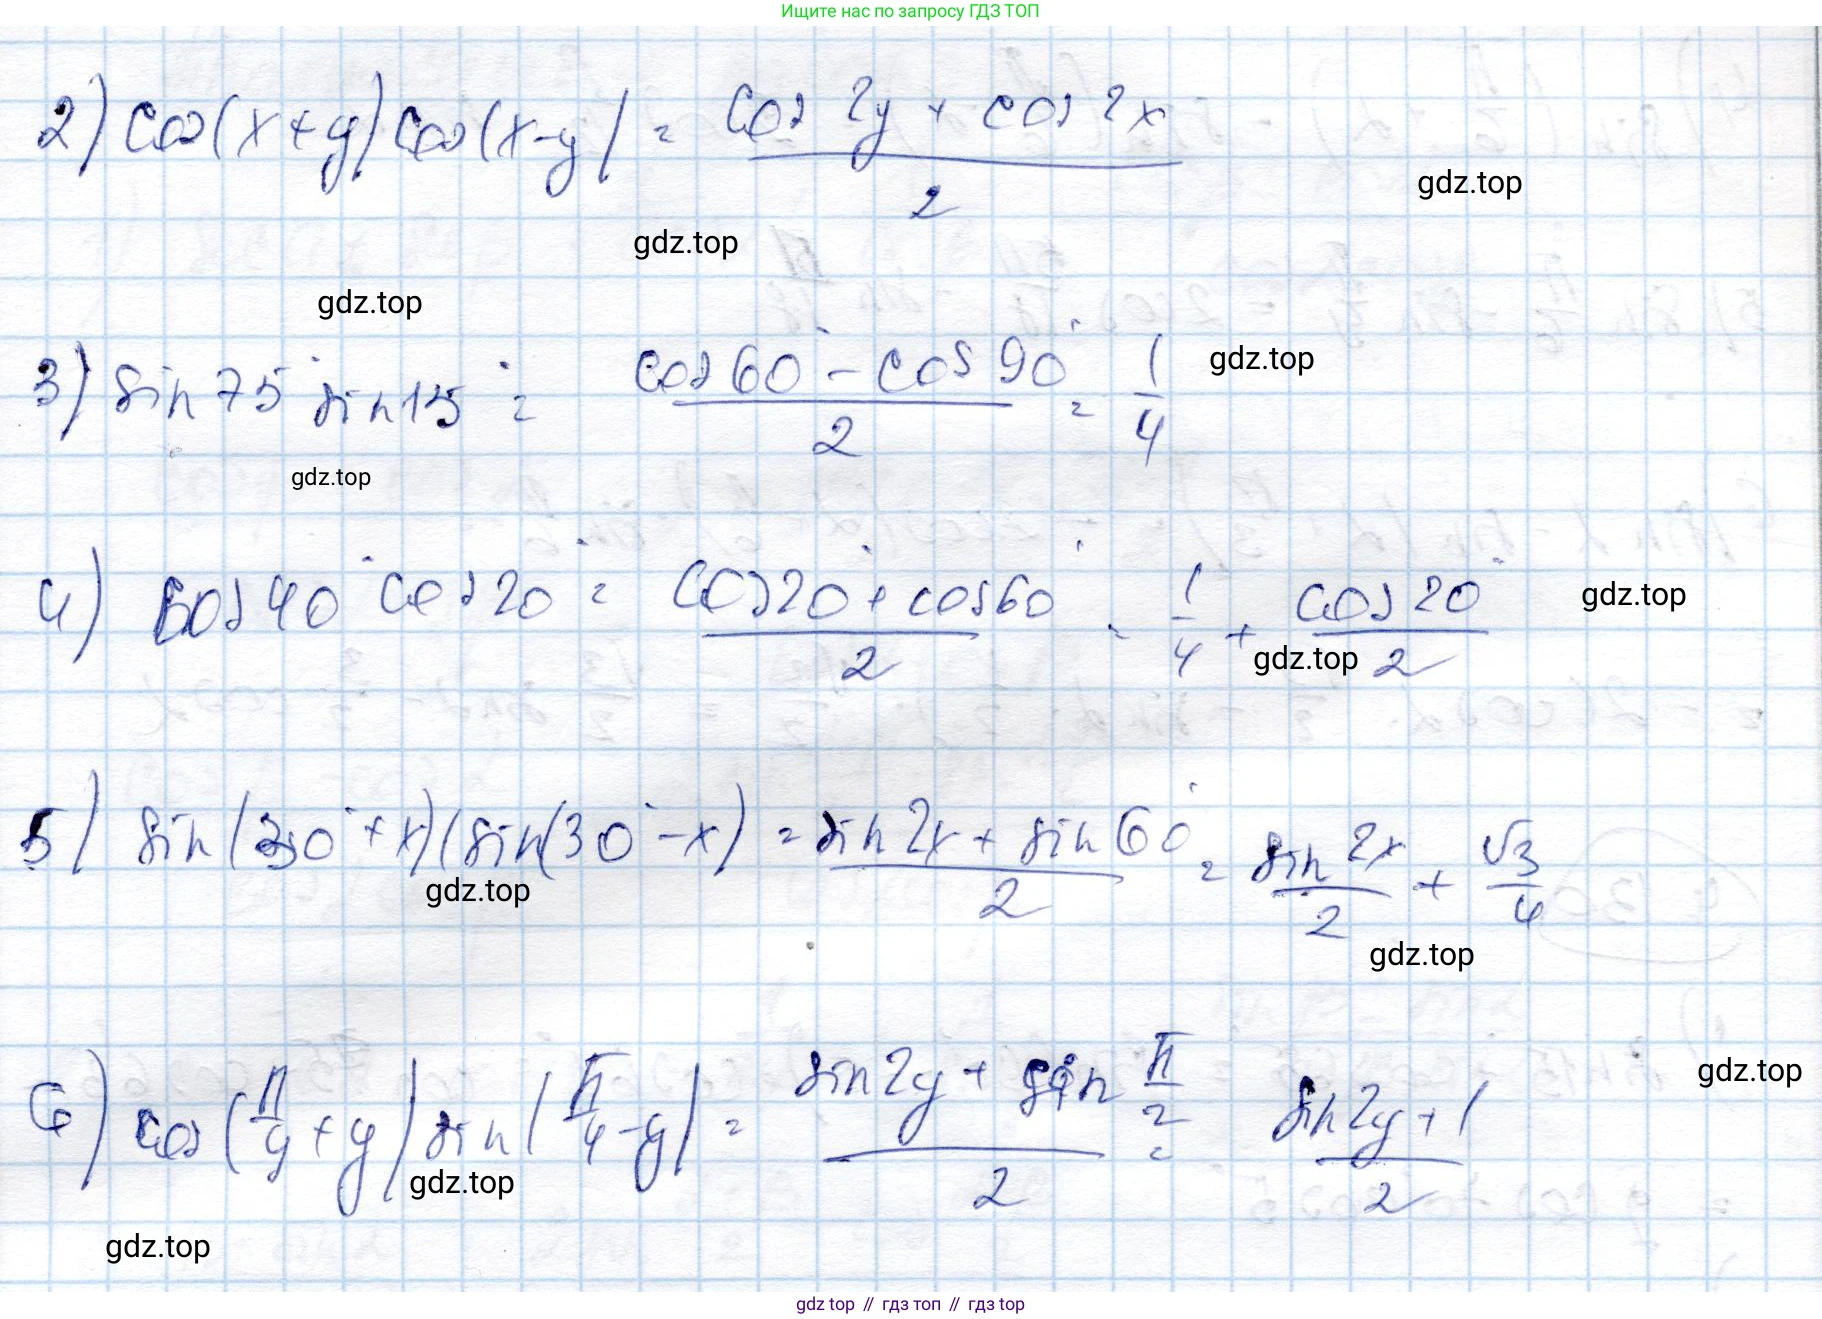 Ищите нас по запросу ГДЗ ТОП
2) cos(x+y)cos(x-y) = (cos 2y + cos 2x)/2
gdz.top
gdz.top
gdz.top
3) sin 75° sin 15° = (cos 60° - cos 90°)/2 = 1/4
gdz.top
gdz.top
4) cos 40° cos 20° = (cos 20° + cos 60°)/2 = 1/4 + cos 20°/2
gdz.top
gdz.top
5) sin(30°+x)(sin(30°-x) = (sin 2x + sin 60°)/2 = sin 2x/2 + √3/4
gdz.top
gdz.top
6) cos(π/4+y) sin(π/4-y) = (sin 2y + sin π/2)/2 = (sin 2y + 1)/2
gdz.top
gdz.top
gdz.top
gdz top // гдз топ // gdz top